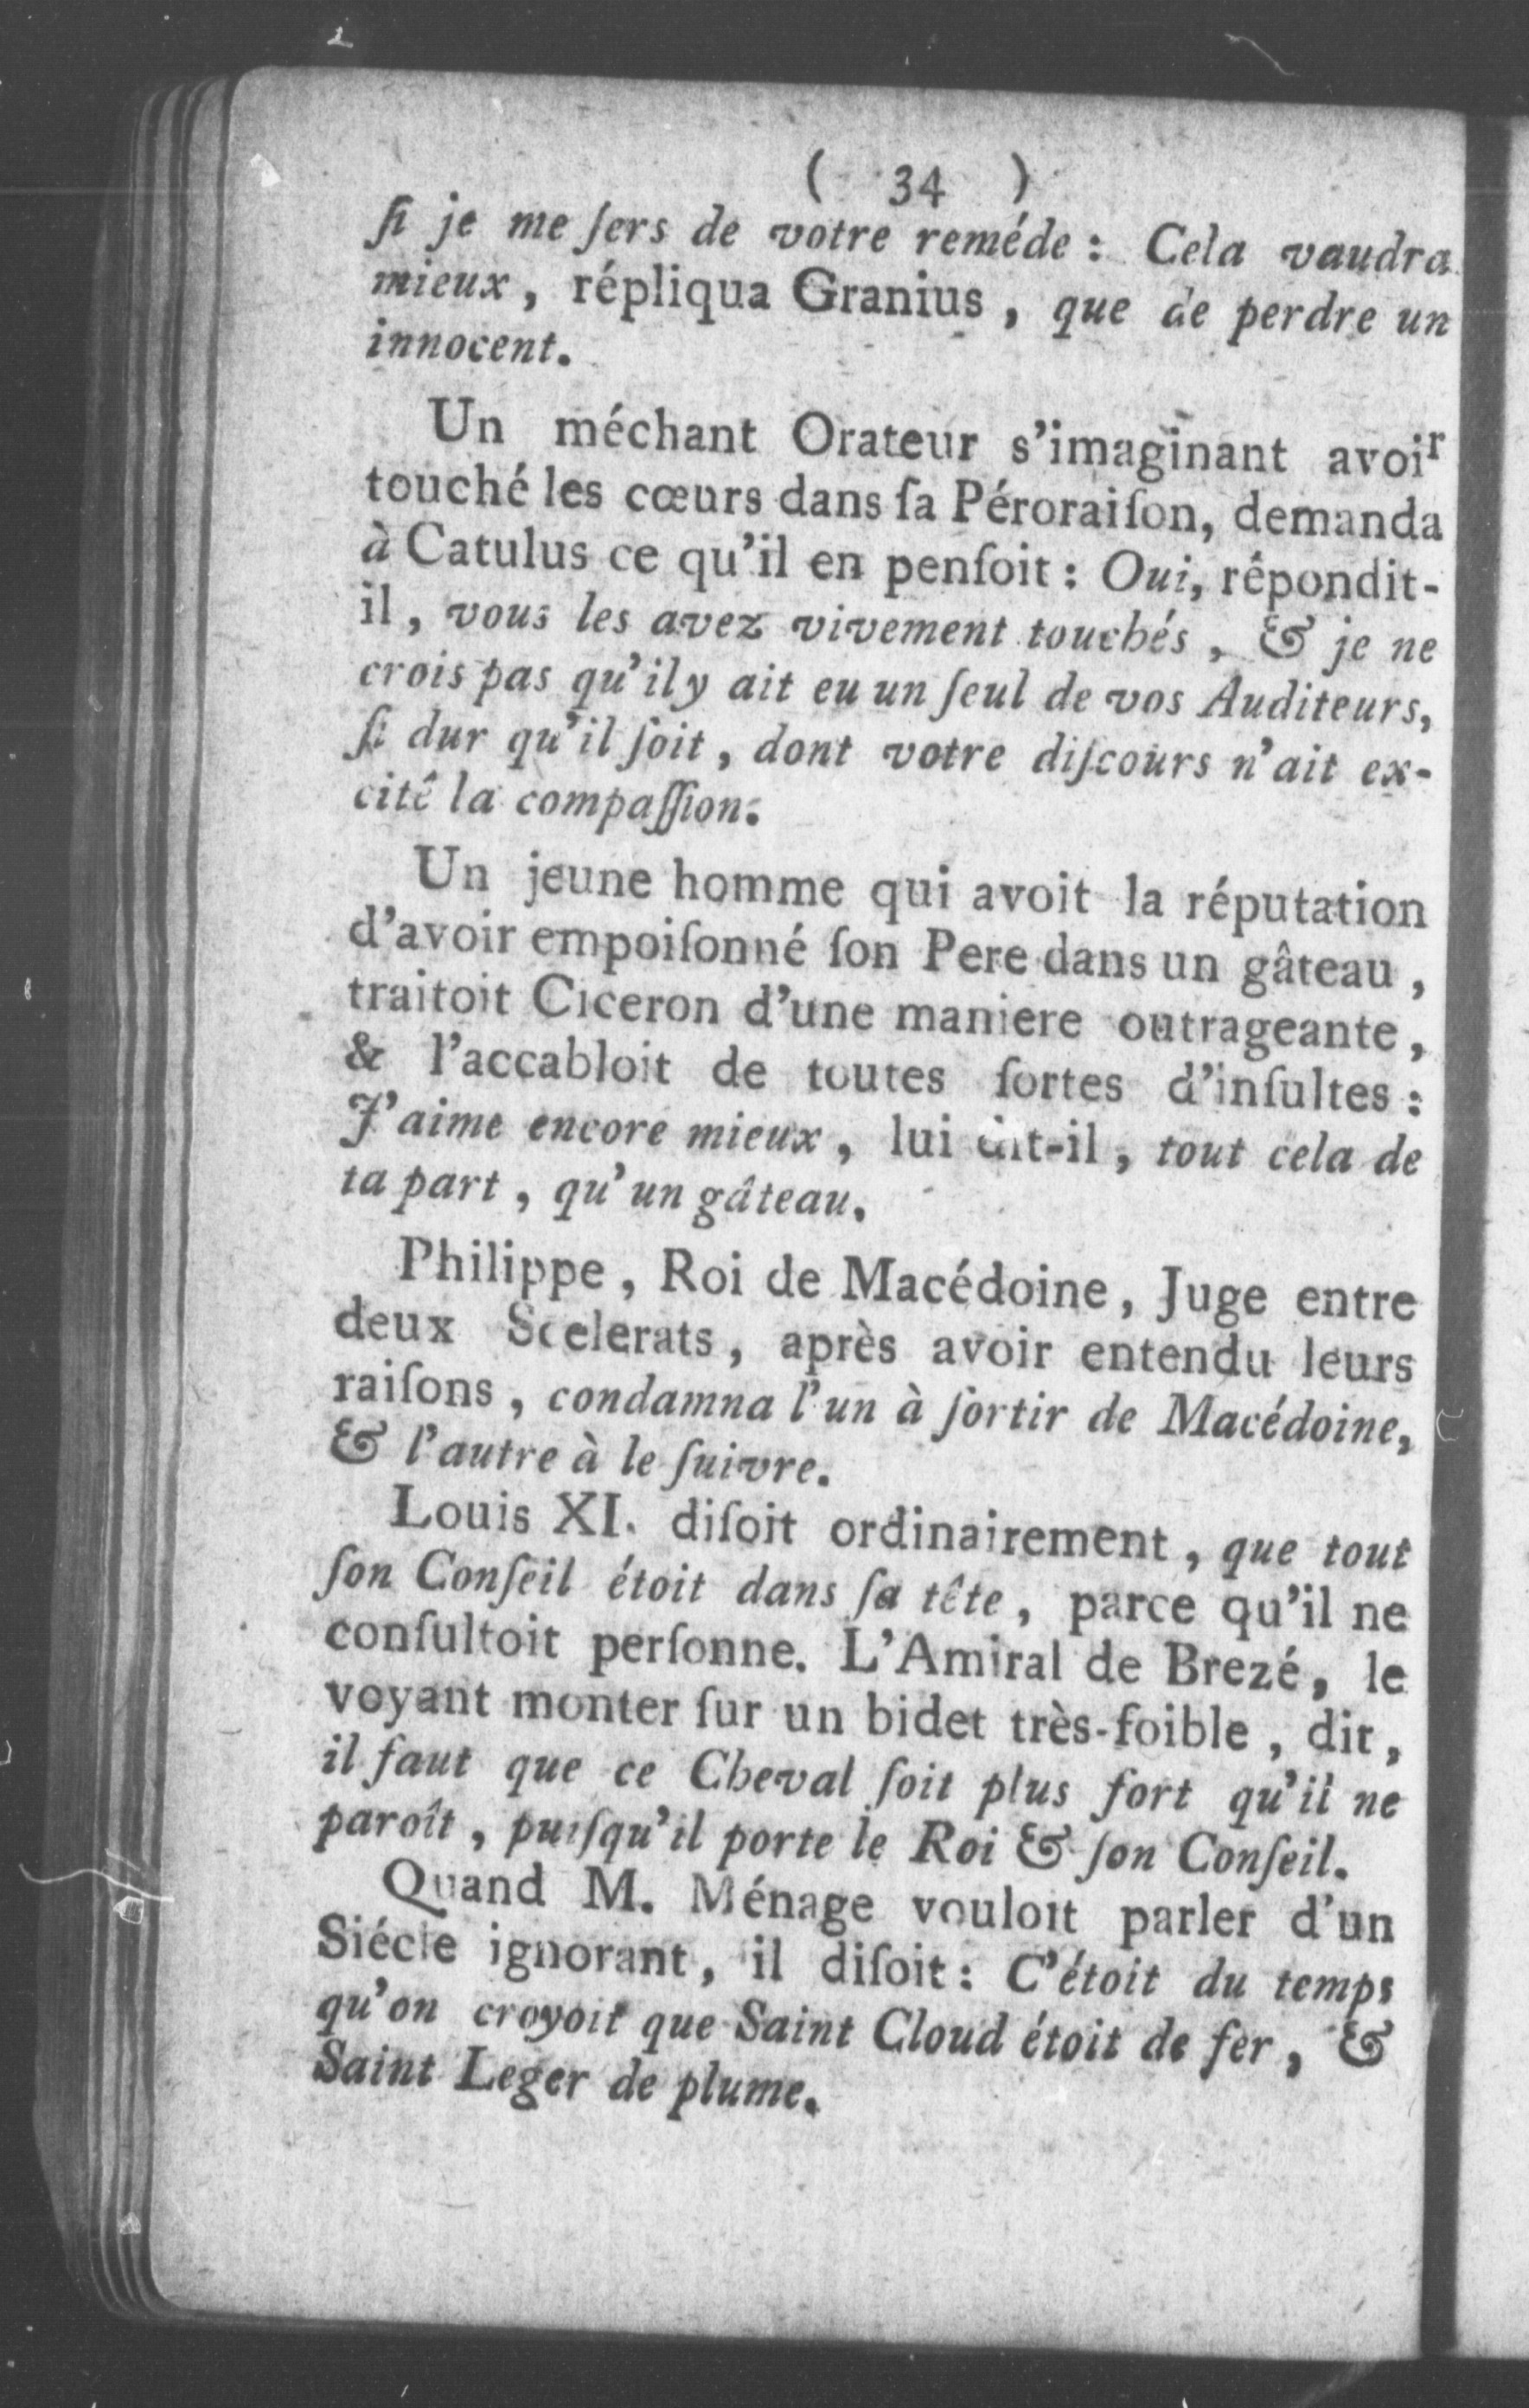 ( 34 )
ſi je me ſers de votre reméde : Cela vaudra
mieux, répliqua Granius, que de perdre un
innocent.
Un méchant Orateur s'imaginant avoir
touché les cœurs dans ſa Péroraiſon, demanda
à Catulus ce qu'il en penſoit : Oui, répondit-
il, vous les avez vivement touchés, & je ne
crois pas qu'il y ait eu un ſeul de vos Auditeurs,
ſi dur qu'il ſoit, dont votre diſcours n'ait ex-
cité la compaſſion.
Un jeune homme qui avoit la réputation
d'avoir empoiſonné ſon Pere dans un gâteau,
traitoit Ciceron d'une maniere outrageante,
& l'accabloit de toutes ſortes d'inſultes :
J'aime encore mieux, lui dit-il, tout cela de
ta part, qu'un gâteau.
Philippe, Roi de Macédoine, Juge entre
deux Scelerats, après avoir entendu leurs
raiſons, condamna l'un à ſortir de Macédoine,
& l'autre à le ſuivre.
Louis XI. diſoit ordinairement, que tout
ſon Conſeil étoit dans ſa tête, parce qu'il ne
conſultoit perſonne. L'Amiral de Brezé, le
voyant monter ſur un bidet très-foible, dit,
il faut que ce Cheval ſoit plus fort qu'il ne
paroît, puiſqu'il porte le Roi & ſon Conſeil.
Quand M. Ménage vouloit parler d'un
Siécle ignorant, il diſoit : C'étoit du temps
qu'on croyoit que Saint Cloud étoit de fer, &
Saint Leger de plume.